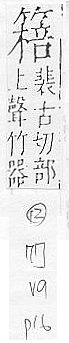 裴古切部
上聲竹器
⑫
V9
p16